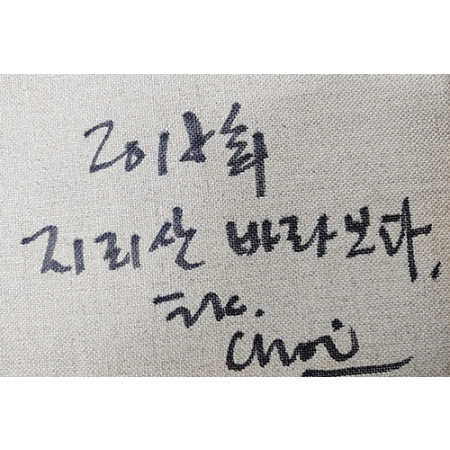 2018
지리산 바라보다.
Choi